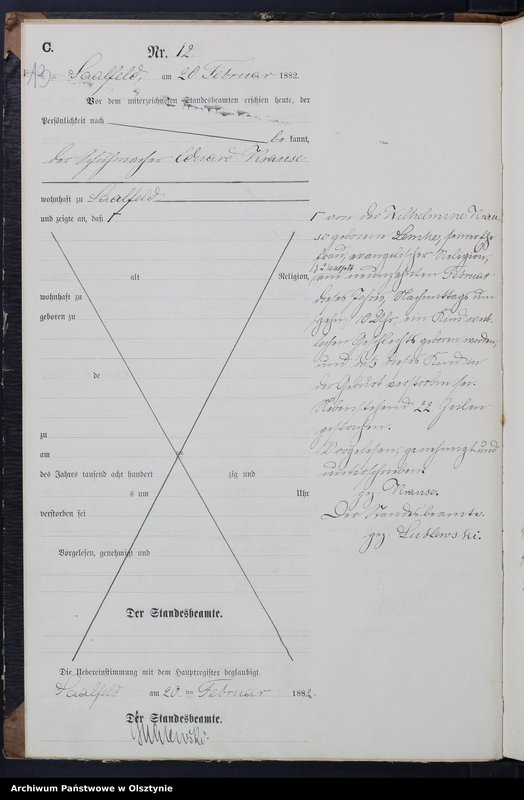 C.
Nr. 12
Saalfeld am 20 Februar 1882.
Vor dem unterzeichneten Standesbeamten erschien heute, der
Persönlichkeit nach
be kannt,
der Schuhmacher Eduard Krause
wohnhaft zu Saalfeld
und zeigte an, daß
alt Religion,
wohnhaft zu
geboren zu
de
zu
am
des Jahres tausend acht hundert zig und
s um Uhr
verstorben sei
Vorgelesen, genehmigt und
Der Standesbeamte.
Die Uebereinstimmung mit dem Hauptregister beglaubigt.
Saalfeld am 20. ten Februar 1882.
Der Standesbeamte.
von der Wilhelmine Krau-
se geborene Lemke, seiner Ehe-
frau, evangelischer Religion,
zu Saalfeld
am neunzehnten Februar
dieses Jahres, Nachmittags um
zehn, 10 Uhr, ein Kind weib-
lichen Geschlechts geboren worden,
und daß dieses Kind in
der Geburt verstorben sei.
Nebenstehend 22 Zeilen
gestrichen.
Vorgelesen, genehmigt und
unterschrieben
gez. Krause.
Der Standesbeamte.
gez. Lublewski.
Archiwum Państwowe w Olsztynie